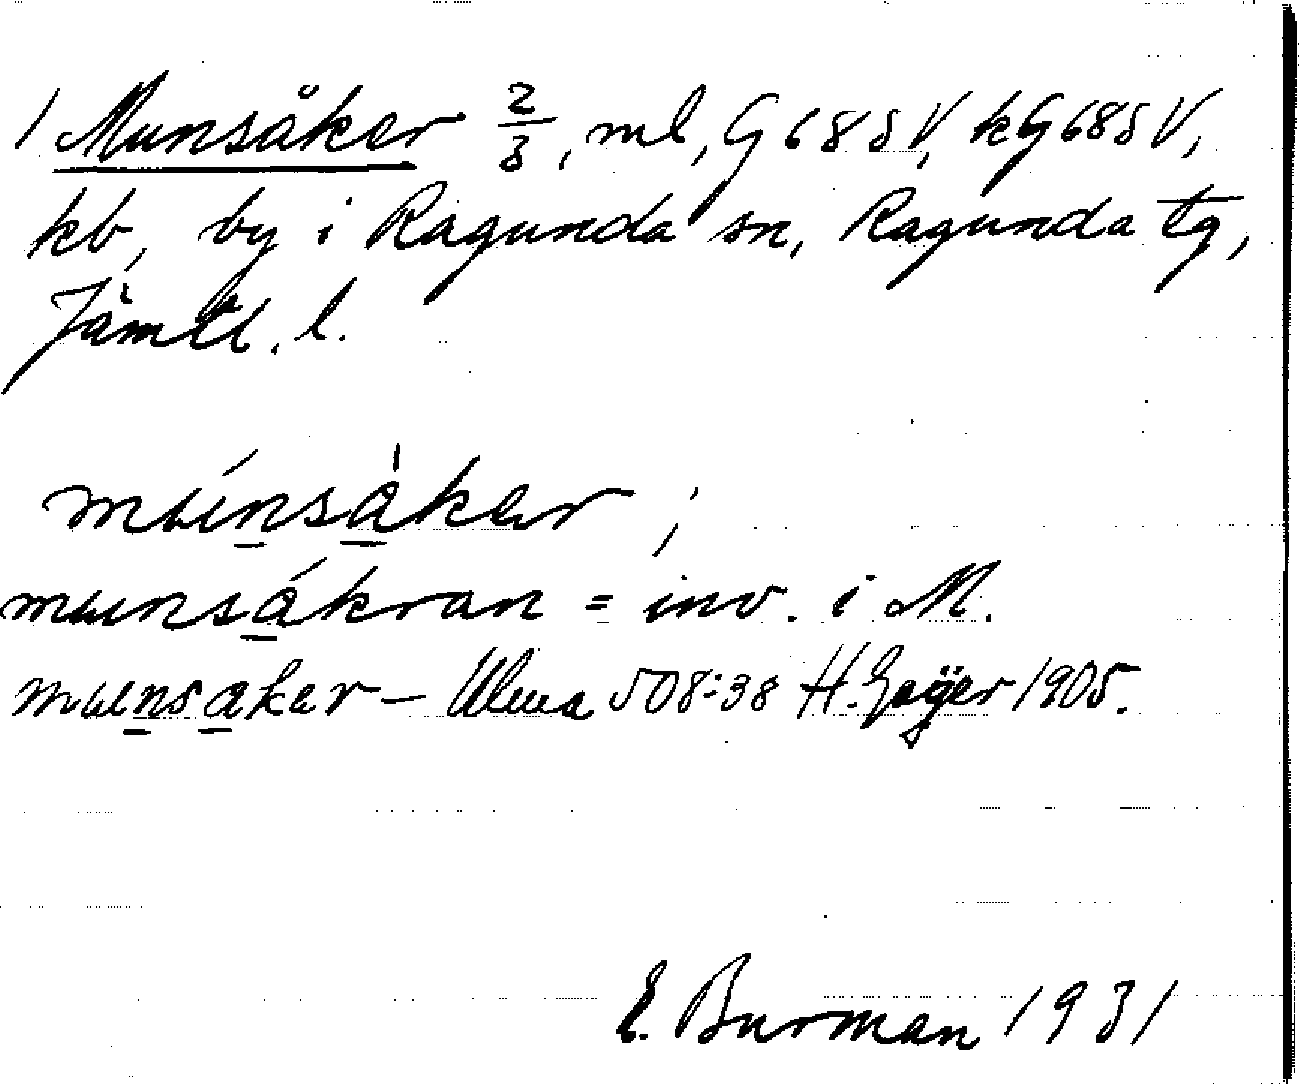 1 Munsåker 2/3, ml, G 68 S V, kG 68 S V,
kb, by i Ragunda sn, Ragunda tg,
Jämtl. l.
munsåker ;
munsåkran = inv. i M.
munsaker – Ulma 508:38 H. Geijer 1905.
E. Burman 1931